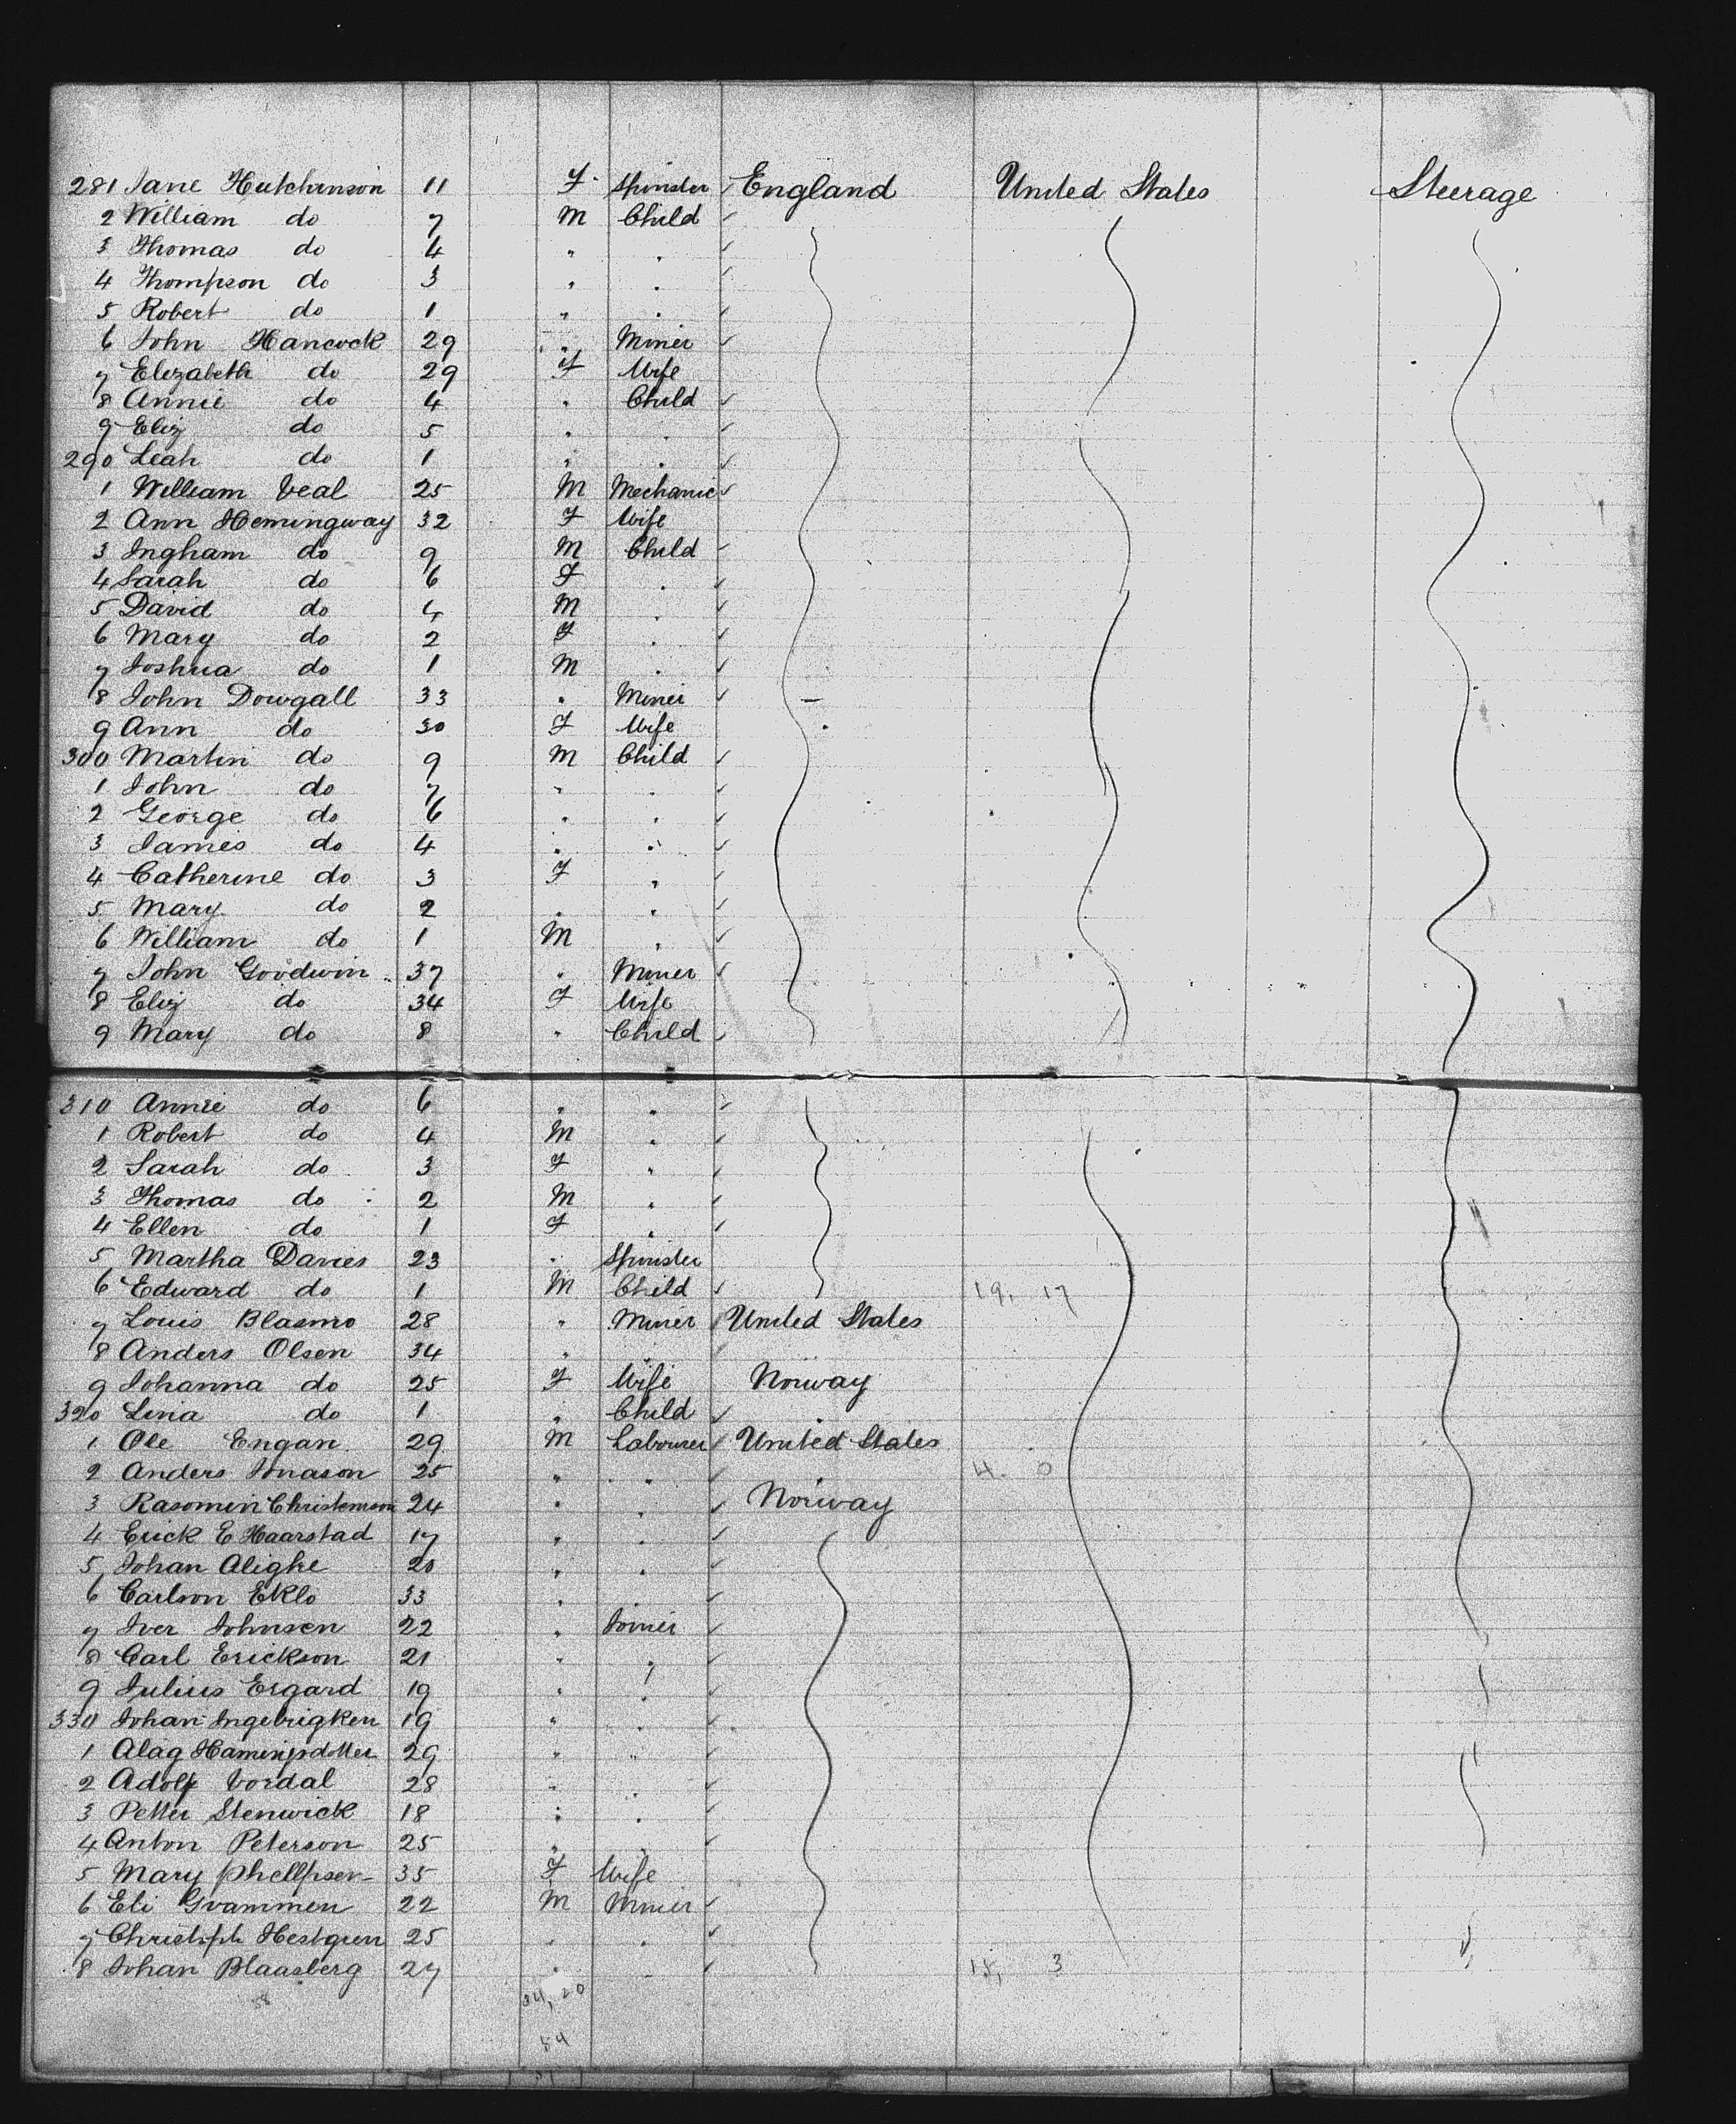 281 Jane Hutchinson 11 F. Spinster England United States Steerage
2 William do 7 M Child
3 Thomas do 4 " "
4 Thompson do 3 " "
5 Robert do 1 " "
6 John Hancock 29 " Miner
7 Elizabeth do 29 F Wife
8 Annie do 4 " Child
9 Eliz do 5 " "
290 Leah do 1 " "
1 William Veal 25 M Mechanic
2 Ann Hemingway 32 F Wife
3 Ingham do 9 M Child
4 Sarah do 6 F "
5 David do 4 M "
6 Mary do 2 F "
7 Joshua do 1 M "
8 John Dowgall 33 " Miner
9 Ann do 30 F Wife
300 Martin do 9 M Child
1 John do 7 " "
2 George do 6 " "
3 James do 4 " "
4 Catherine do 3 F "
5 Mary do 2 " "
6 William do 1 M "
7 John Goodwin 37 " Miner
8 Eliz do 34 F Wife
9 Mary do 8 " Child
310 Annie do 6 " "
1 Robert do 4 M "
2 Sarah do 3 F "
3 Thomas do 2 M "
4 Ellen do 1 F "
5 Martha Davies 23 " Spinster
6 Edward do 1 M Child 19, 17
7 Louis Blasmo 28 " Miner United States
8 Anders Olsen 34 " "
9 Johanna do 25 F Wife Norway
320 Lina do 1 " Child "
1 Ole Engan 29 M Labourer United States
2 Anders Jonason 25 " " 4. 0
3 Rasomin Christenson 24 " " Norway
4 Erick E Haarstad 17 " "
5 Johan Alighe 20 " "
6 Carlson Eklo 33 " "
7 Iver Johnsen 22 " Joiner
8 Carl Erickson 21 " "
9 Julius Ergard 19 " "
330 Johan Ingebrigken 19 " "
1 Alag 29 " "
2 Adolf Vordal 28 " "
3 Petter Stenwick 18 " "
4 Anton Peterson 25 " "
5 Mary Phellpsen 35 F Wife
6 Eli Gvammen 22 M Miner
7 Christoph Hestgren 25 " "
8 Johan Blaasberg 27 " " 15, 3
58 34, 20
54